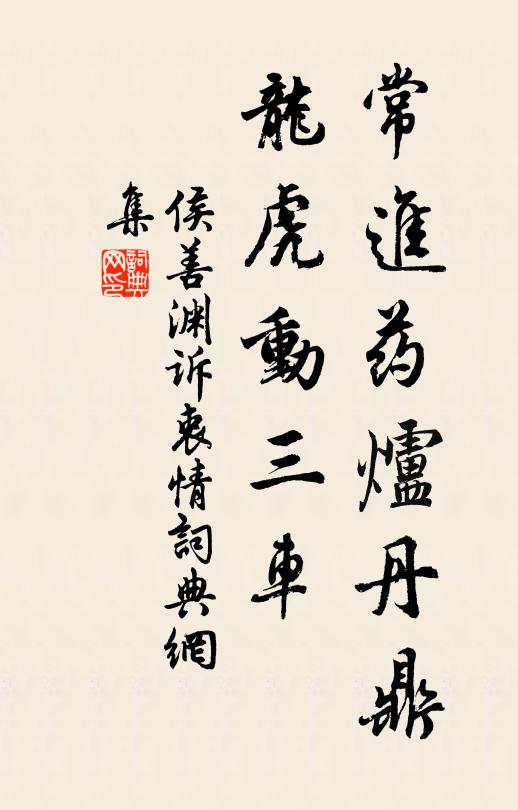 常進药爐丹鼎
龍虎動三車
侯善渊诉衷情詞典網
集
詞典
网印